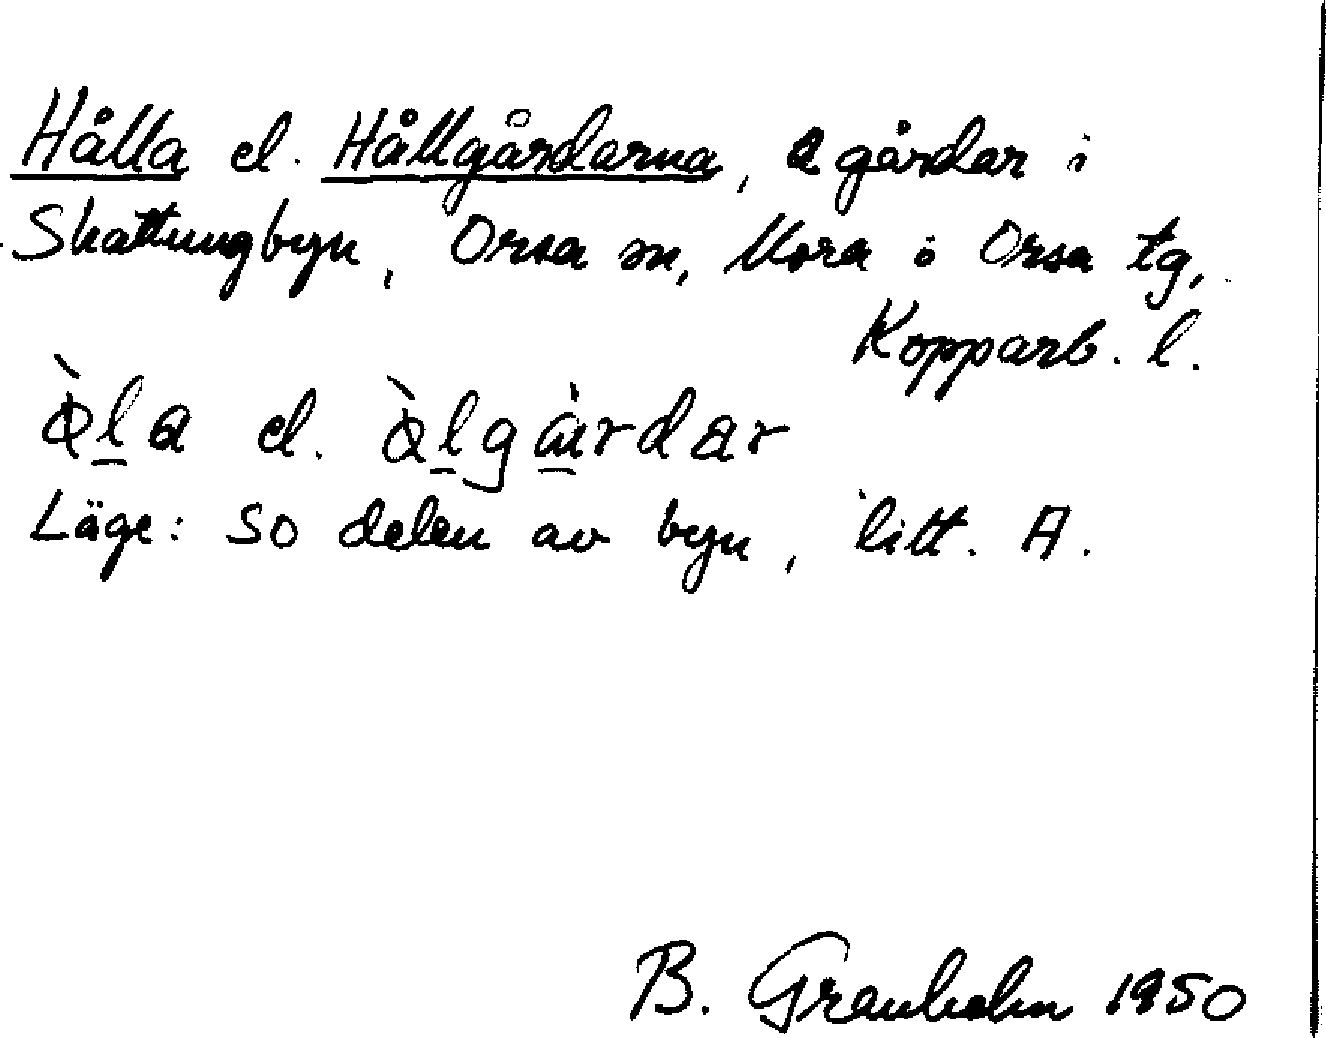 Hålla el. Hållgårdarna, 2 gårdar i
Skattungbyn, Orsa sn, Mora o Orsa tg,
Kopparb. l.
å̀la el. å̀lgàrdar
Läge: SO delen av byn, litt. A.
B. Granholm 1950